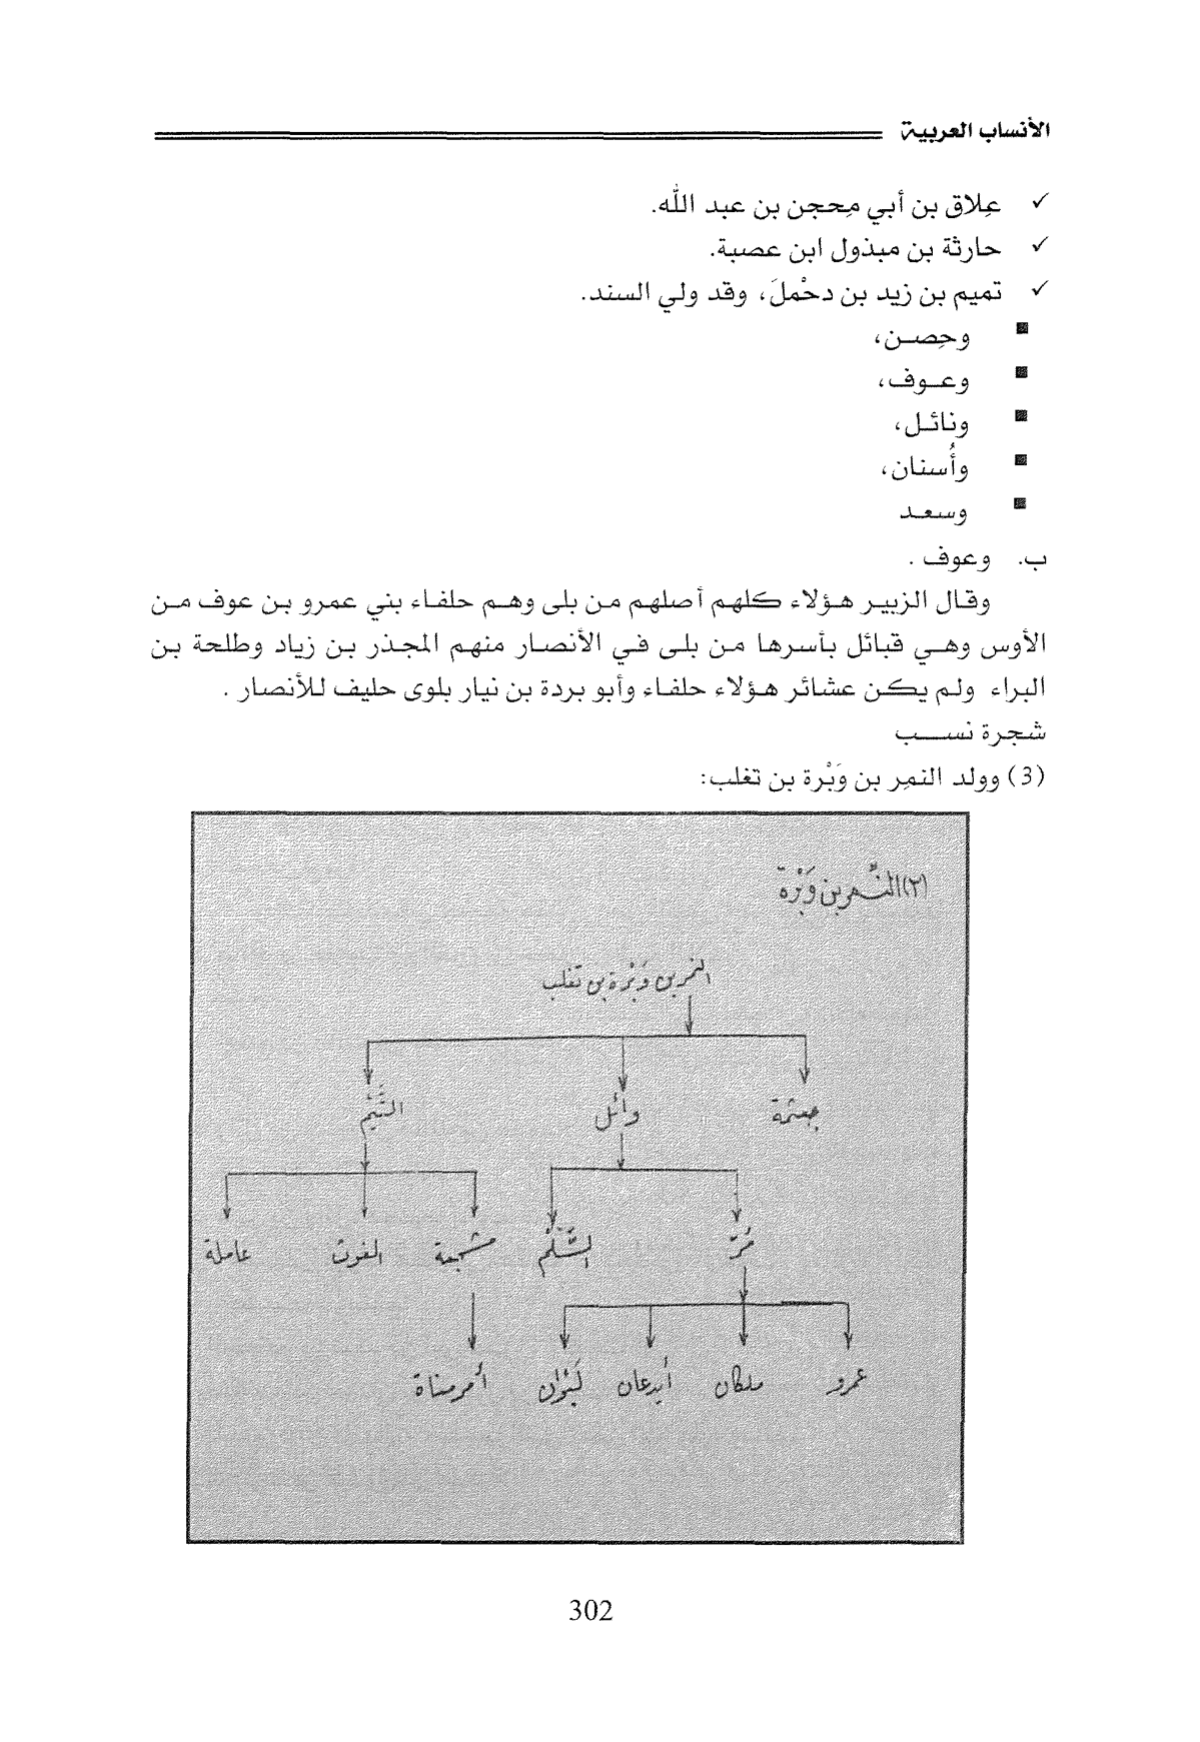 الأنساب العربية
✓ عِلاق بن أبي مِحجن بن عبد الله.
✓ حارثة بن مبذول ابن عصبة.
✓ تميم بن زيد بن دحْملَ، وقد ولي السند.
▪ وحِصن،
▪ وعوف،
▪ ونائل،
▪ وأُسنان،
▪ وسعد
ب. وعوف .
وقال الزبير هؤلاء كلهم أصلهم من بلى وهم حلفاء بني عمرو بن عوف من
الأوس وهي قبائل بأسرها من بلى في الأنصار منهم المجذر بن زياد وطلحة بن
البراء ولم يكن عشائر هؤلاء حلفاء وأبو بردة بن نيار بلوى حليف للأنصار .
شجرة نسب
(3) وولد النمِر بن وَبْرة بن تغلب:
(٢) النَّمر بن وَبْرة
النمر بن وَبْرة بن تغلب
جعثمة وائل التَّيْم
مُرّ السَّلْم مشجعة الغوث عاملة
عمرو ملكان أيدعان لَبْوان أمر مناة
302